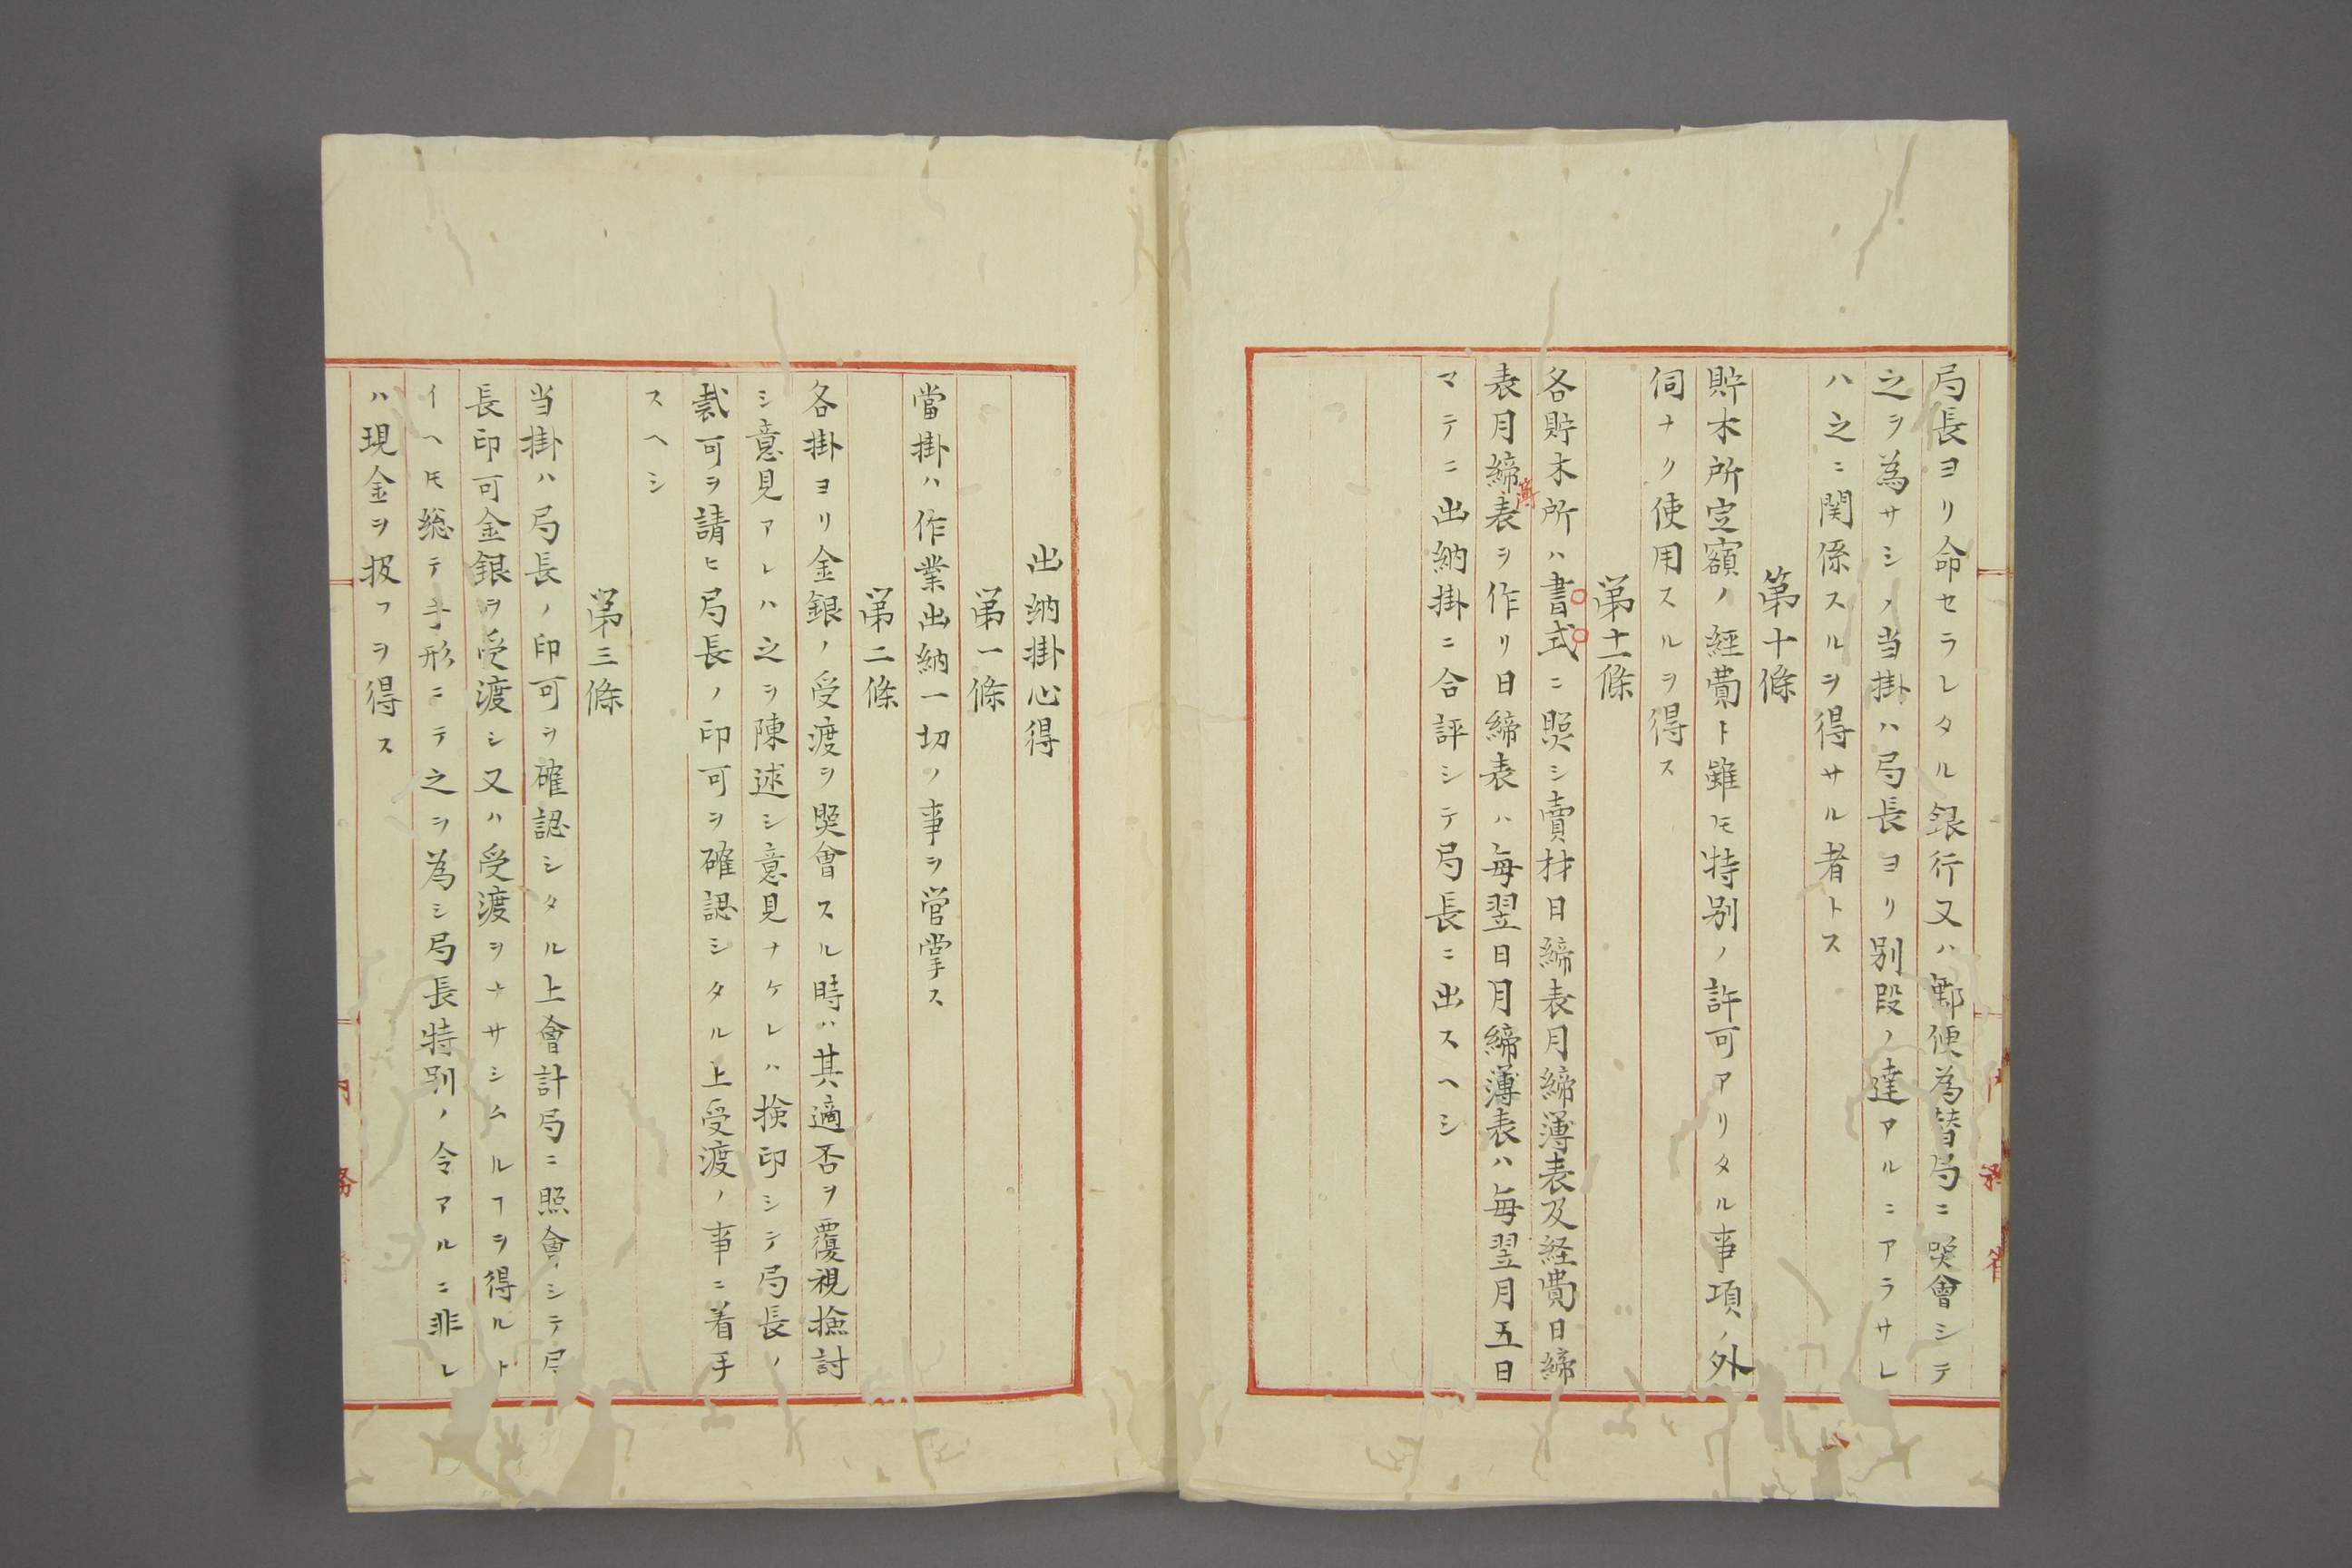 局長ヨリ命セラレタル銀行又ハ郵便為替局ニ照會シテ
之ヲ為サシメ当掛ハ局長ヨリ別段ノ達アルニアラサレ
ハ之ニ関係スルヲ得サル者トス
第十條
貯木所定額ノ経費ト雖𪜈特別ノ許可アリタル事項ノ外
伺ナク使用スルヲ得ス
第十一條
各貯木所ハ書式ニ照シ賣材日締表月締簿表及経費日締
表月締表ヲ作リ日締表ハ毎翌日月締簿表ハ毎翌月五日
簿
マテニ出納掛ニ合評シテ局長ニ出スヘシ
出納掛心得
第一條
當掛ハ作業出納一切ノ事ヲ営掌ス
第二條
各掛ヨリ金銀ノ受渡ヲ照會スル時ハ其適否ヲ覆視撿討
シ意見アレハ之ヲ陳述シ意見ナケレハ撿印シテ局長ノ
裁可ヲ請ヒ局長ノ印可ヲ確認シタル上受渡ノ事ニ着手
スヘシ
第三條
当掛ハ局長ノ印可ヲ確認シタル上會計局ニ照會シテ局
長印可金銀ヲ受渡シ又ハ受渡ヲナサシムルヿヲ得ルト
イヘ𪜈総テ手形ニテ之ヲ為シ局長特別ノ令アルニ非レ
ハ現金ヲ扱フヲ得ス
内務省